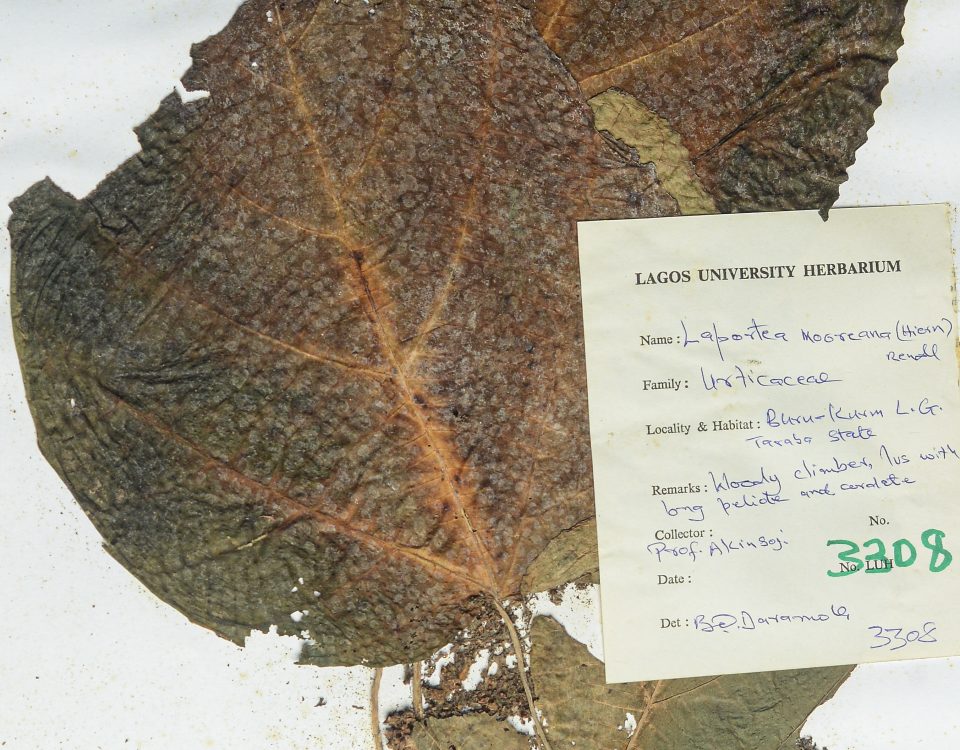 LAGOS UNIVERSITY HERBARIUM
Name: Laportea mooreana (Hiern)
Family: Urticaceae
Locality & Habitat: Buru-Kurm L.G.
Taraba State
Remarks: Woody climber, lvs with
long peliole and cordate
No.
Collector:
Prof. Akinsoji
3308
No. LUH
Date:
Det: B.O. Daramola
3308